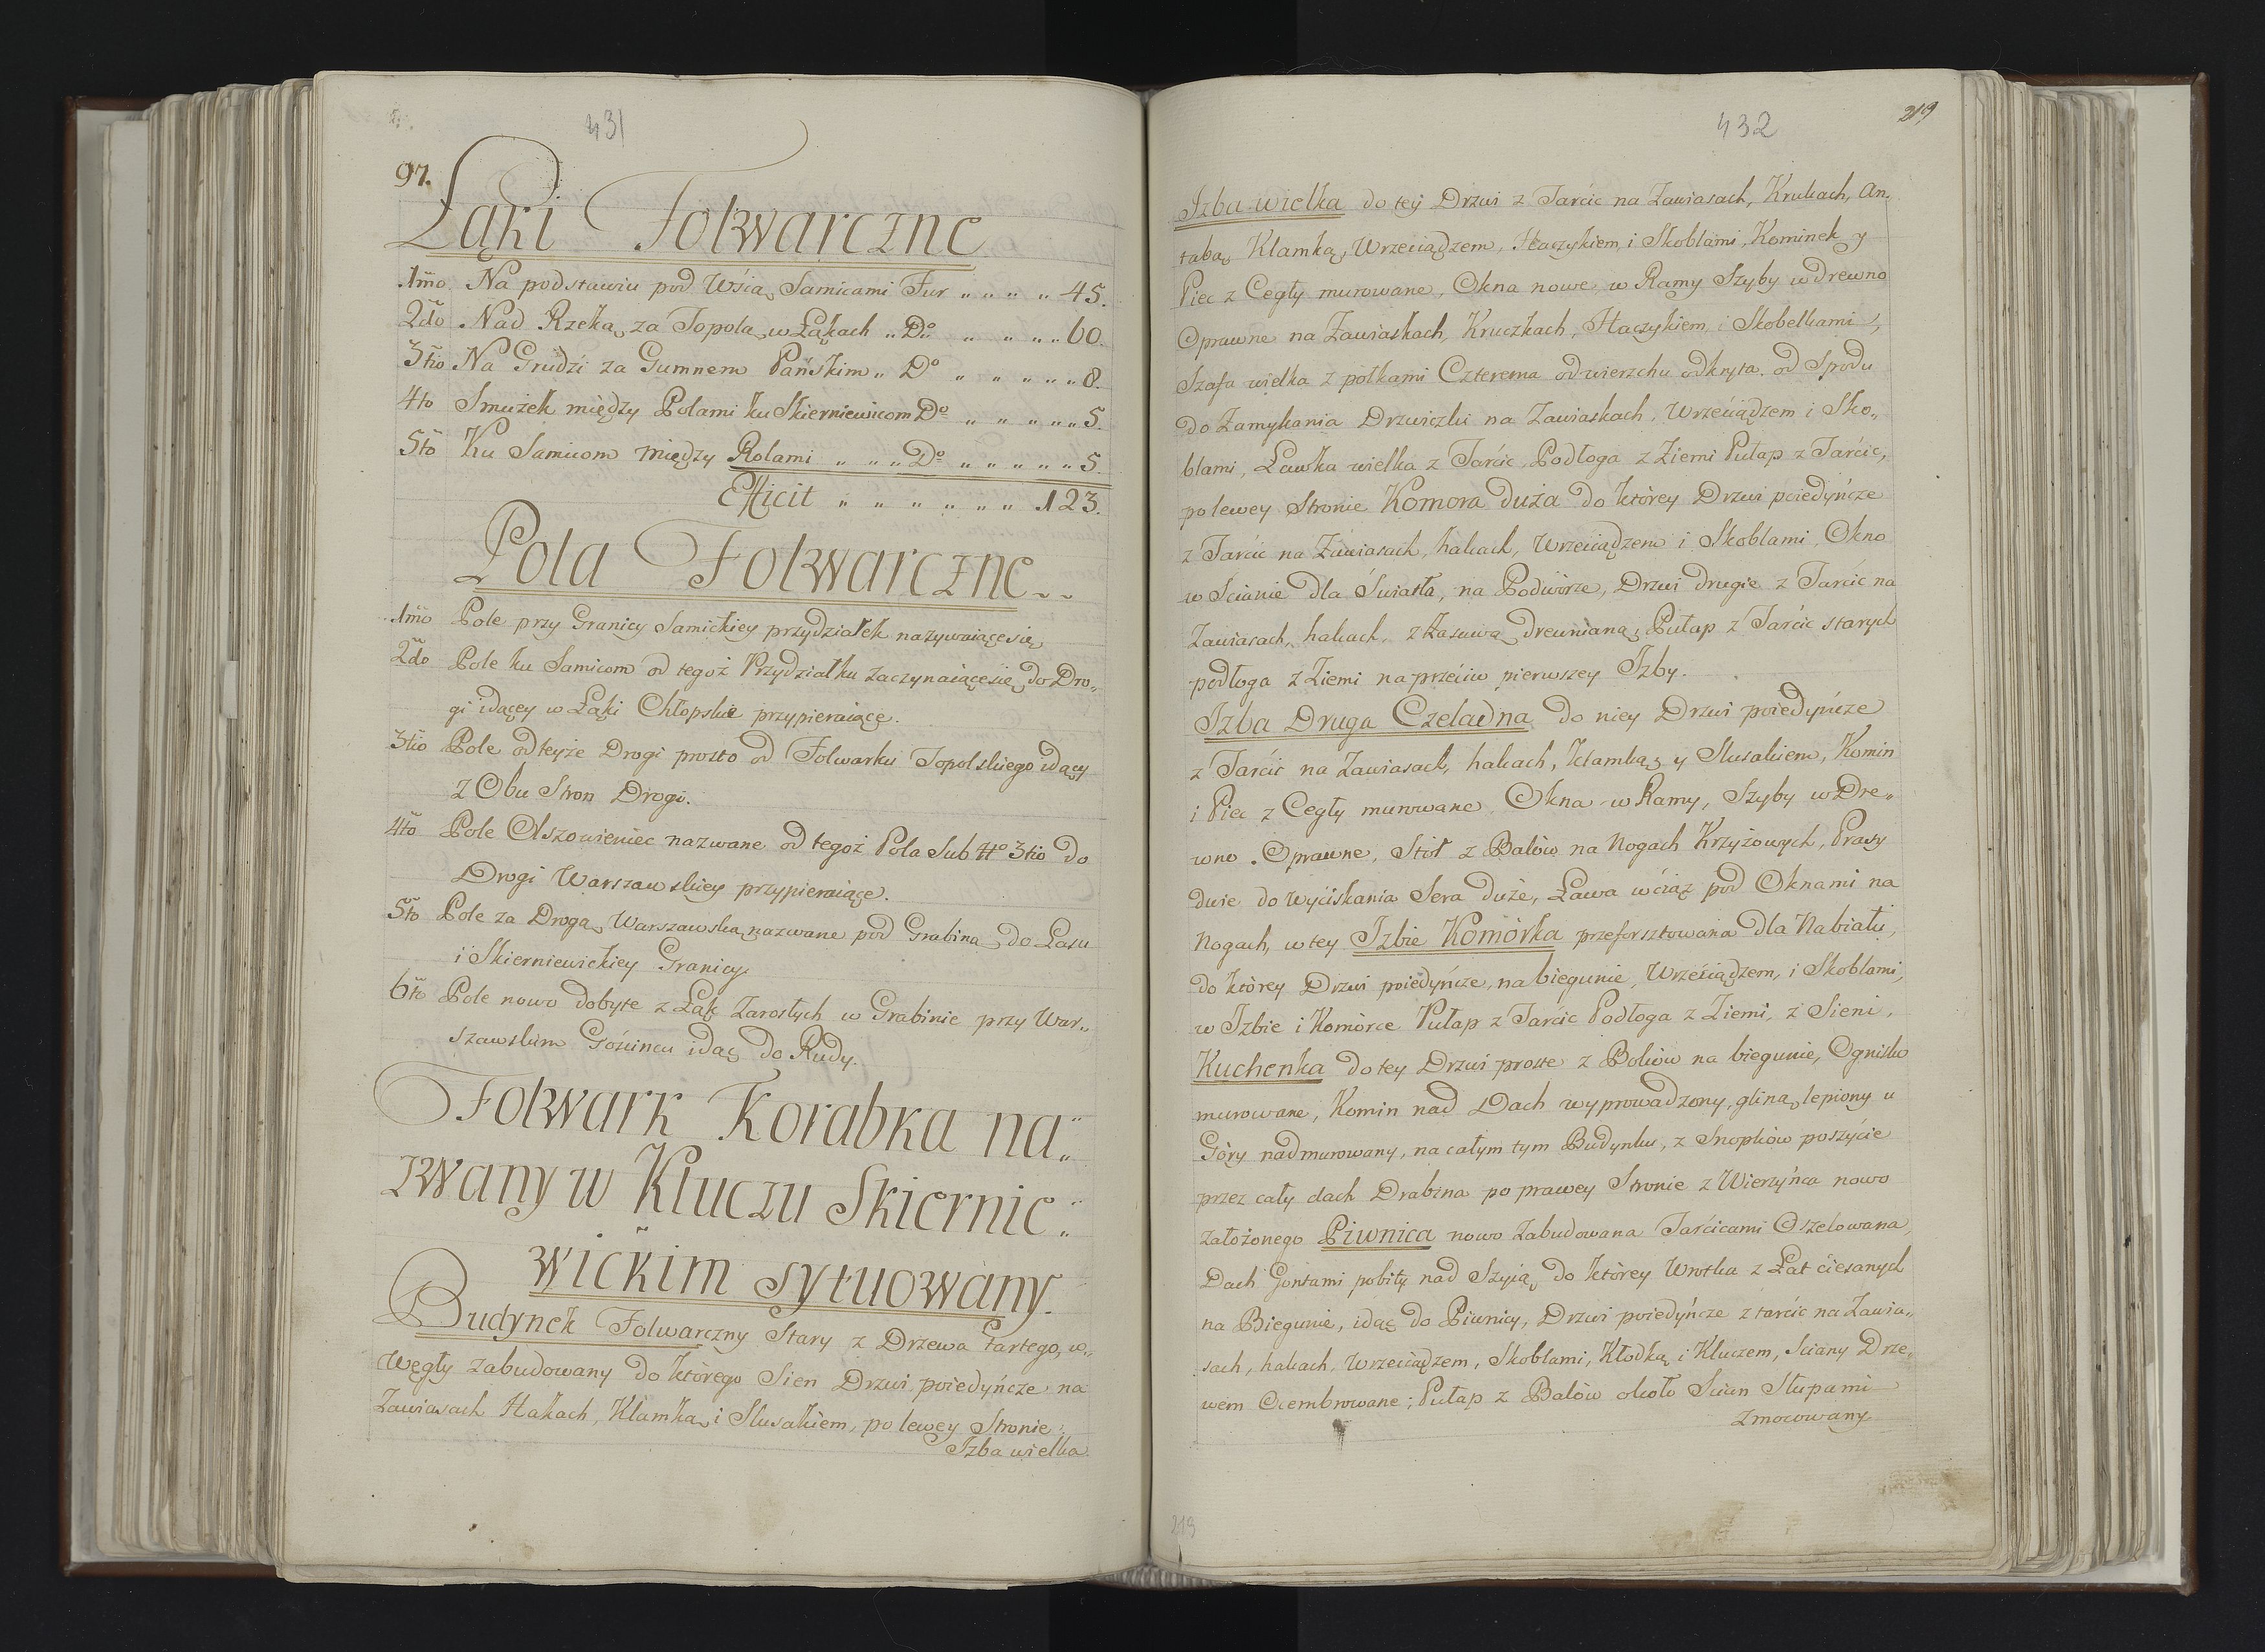 431
97.
Łąki Folwarczne
1mo. Na podstawiu pod Wsią Samicami Fur „ „ „ „ 45.
2do Nad Rzeką za Topolą w Łąkach „ Do „ „ „ „ 60.
3tio Na Grudzi za Gumnem Pańskim „ Do „ „ „ „ „ 8.
4to Smużek między Polami ku Skierniewicom Do „ „ „ „ „ 5.
5to Ku Samicom między Rolami „ „ „ Do „ „ „ „ „ „ 5
Efficit „ „ „ „ „ „ 123.
Pola Folwarczne
1mo Pole przy Granicy Samickiey przydziałek nazywaiącesię
2do Pole ku Samicom od tegoż Przydziałku zaczynaiącesię do Dro„
gi idącey w Łąki Chłopskie przypieraiące.
3tio Pole od teyże Drogi prosto od Folwarku Topolskiego idący
z Obu Stron Drogi.
4to Pole Olszowieniec nazwane od tegoż Pola Sub No 3tio do
Drogi Warszawskiey przypieraiące.
5to Pole za Drogą Warszawską nazwane pod Grabiną do Lasu
i Skierniewickiey Granicy.
6to Pole nowo dobyte z Łąk Zarosłych w Grabinie przy War„
szawskim Gościncu idąc do Rudy.
Folwark Korabka na„
zwany w Kluczu Skiernie„
wickim sytuowany.
Budynek Folwarczny Stary z Drzewa tartego, w„
Węgły zabudowany do którego Sien Drzwi poiedyńcze na
Zawiasach Hakach, Klamką i Slusakiem, po lewey Stronie
Izba wielka.
432
219
Izba wielka do tey Drzwi z Tarcic na Zawiasach, Krukach, An„
tabą, Klamką, Wrzeciądzem, Haczykiem, i Skoblami, Kominek y
Piec z Cegły murowane, Okna nowe w Ramy Szyby w drewno
Oprawne na Zawiaskach, Kruczkach, Haczykiem, i Skobelkami,
Szafa wielka z pólkami Czterema od wierzchu odkryta, od Spodu
do Zamykania Drzwiczki na Zawiaskach, Wrzeciądzem i Sko„
blami, Ławka wielka z Tarcic, Podłoga z Ziemi Pułap z Tarcic,
po lewey Stronie Komora duża do którey Drzwi poiedyńcze
z Tarcic na Zawiasach, hakach, Wrzeciądzem i Skoblami, Okno
w Scianie dla Światła, na Podwórze, Drzwi drugie z Tarcic na
Zawiasach, hakach, z Zasuwą drewnianą, Pułap z Tarcic starych
podłoga z Ziemi naprzeciw pierwszey Izby.
Izba Druga Czeladna do niey Drzwi poiedyńcze
z Tarcic na Zawiasach, hakach, klamką, y Slusakiem, Komin
i Piec z Cegły murowane Okna w Ramy, Szyby w Dre„
wno Oprawne, Stół z Balów na Nogach Krzyżowych, Prasy
dwie do wyciskania Sera duże, Ława wciąż pod Oknami na
Nogach, w tey Izbie Komórka przeforsztowana dla Nabiału,
do którey Drzwi poiedyńcze, na biegunie, Wrzeciądzem, i Skoblami,
w Izbie i Komórce Pułap z Tarcic Podłoga z Ziemi, z Sieni,
Kuchenka do tey Drzwi proste z Bolów na biegunie, Ognisko
murowane, Komin nad Dach wyprowadzony, gliną lepiony u
Góry nadmurowany, na całym tym Budynku, z Snopków poszycie
przez cały dach Drabina po prawey Stronie z Wierzyńca nowo
założonego Piwnica nowo Zabudowana Tarcicami Oszelowana,
Dach Gontami pobity nad Szyią, do którey Wrotka z Łat ciesanych
na Biegunie, idąc do Piwnicy, Drzwi poiedyńcze z tarcic na Zawia„
sach, hakach, Wrzeciądzem, Skoblami, Kłodką i Kluczem, Sciany Drze„
wem Ocembrowane; Pułap z Balów około Scian Słupami
Zmocowany
219